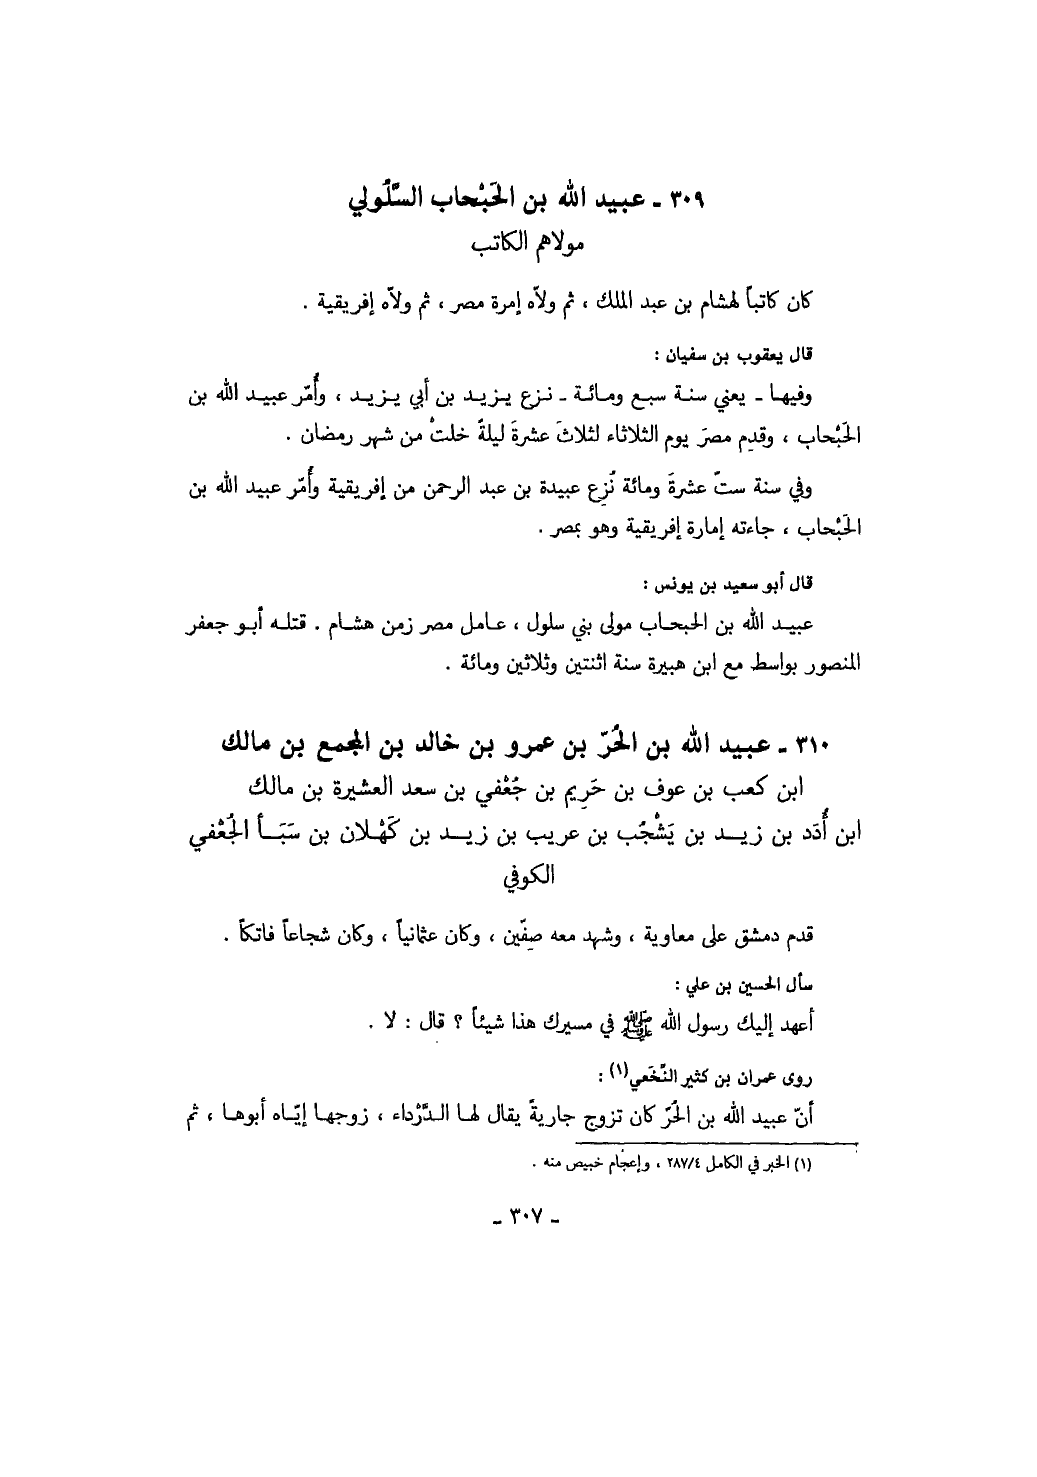 ٣٠٩ ـ عبيد الله بن الحَبْحاب السَّلُولي
مولاهم الكاتب
كان كاتباً لهشام بن عبد الملك ، ثم ولاّه إمرة مصر ، ثم ولاّه إفريقية .
قال يعقوب بن سفيان :
وفيها ـ يعني سنة سبع ومائة ـ نزع يزيد بن أبي يزيد ، وأُمّر عبيد الله بن
الحَبْحاب ، وقدِم مصرَ يوم الثلاثاء لثلاثَ عشرةَ ليلةً خلتْ من شهر رمضان .
وفي سنة ستّ عشرةَ ومائة نُزِع عبيدة بن عبد الرحمن من إفريقية وأُمّر عبيد الله بن
الحَبْحاب ، جاءته إمارة إفريقية وهو بمصر .
قال أبو سعيد بن يونس :
عبيد الله بن الحبحاب مولى بني سلول ، عامل مصر زمن هشام . قتله أبو جعفر
المنصور بواسط مع ابن هبيرة سنة اثنتين وثلاثين ومائة .
٣١٠ ـ عبيد الله بن الحُرّ بن عمرو بن خالد بن المجمع بن مالك
ابن كعب بن عوف بن حَرِيم بن جُعْفي بن سعد العشيرة بن مالك
ابن أُدَد بن زيد بن يَشْجُب بن عريب بن زيد بن كَهْلان بن سَبَأ الجُعْفي
الكوفي
قدم دمشق على معاوية ، وشهد معه صِفّين ، وكان عثمانياً ، وكان شجاعاً فاتكاً .
سأل الحسين بن علي :
أعهد إليك رسول الله ﷺ في مسيرك هذا شيئاً ؟ قال : لا .
روى عمران بن كثير النَّخَعي(١) :
أنّ عبيد الله بن الحُرّ كان تزوج جاريةً يقال لها الدَّرْداء ، زوجها إيّاه أبوها ، ثم
(١) الخبر في الكامل ٢٨٧/٤ ، وإعجام خبيص منه .
ـ ٣٠٧ ـ